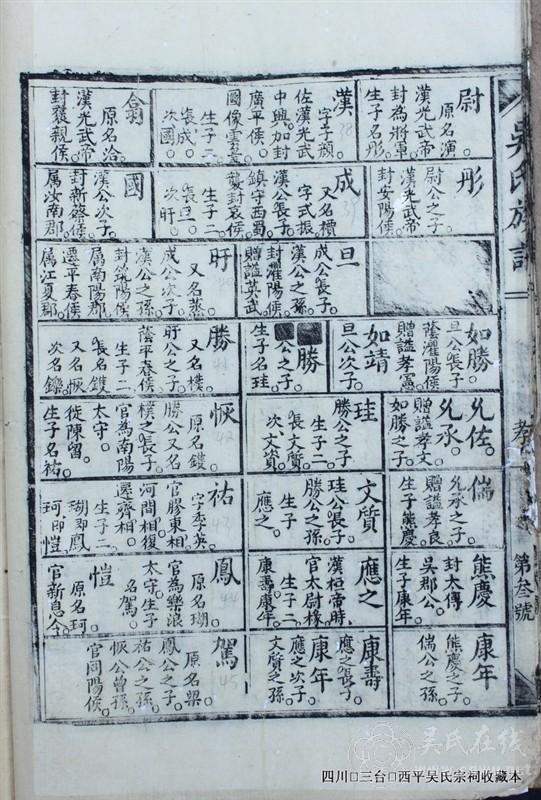 吳氏族譜
孝
第叁號
尉
原名演
漢光武帝
封為將軍
生子名彤
漢
字子顏
佐漢光武
中興加封
廣平侯
圖像雲臺
生子二
長成
次國
翕
原名洽
漢光武帝
封褒親侯
彤
尉公之子
漢光武帝
封安陽侯
成
又名櫝
字式振
漢公長子
鎮守西蜀
襲封哀侯
生子二
長旦
次盱
國
漢公次子
封新蔡侯
屬汝南郡
旦
成公長子
漢公之孫
封灈陽侯
贈謚英武
盱
又名蒸
成公次子
漢公之孫
封筑陽侯
屬南陽郡
遷平春侯
屬江夏郡
如勝
旦公長子
蔭灈陽侯
贈謚孝憲
如靖
旦公次子
勝
公之子
生子名珪
勝
又名樸
盱公之子
蔭平春侯
生子二
長名鑊
又名恢
次名鑠
允佐
允承
贈謚孝文
如勝之子
珪
勝公之子
生子二
長文質
次文資
恢
原名鑊
勝公又名
樸之長子
官為南陽
太守
從陳留
生子名祐
偳
允承之子
贈謚孝良
生子熊慶
文質
珪公長子
勝公之孫
生子
應之
祐
字季英
官膠東相
河間相復
遷齊相
生子二
瑚即鳳
珂即愷
熊慶
封太傅
吳郡公
生子康年
應之
漢桓帝時
官太尉椽
生子二
康壽康年
鳳
原名瑚
官為樂浪
太守生子
名駕
愷
原名珂
官新息令
康年
熊慶之子
偳公之孫
康壽
應之長子
康年
應之次子
文質之孫
駕
原名梁
鳳公之子
祐公之孫
恢公曾孫
官同陽侯
吴氏在线
四川□三台□西平吴氏宗祠收藏本